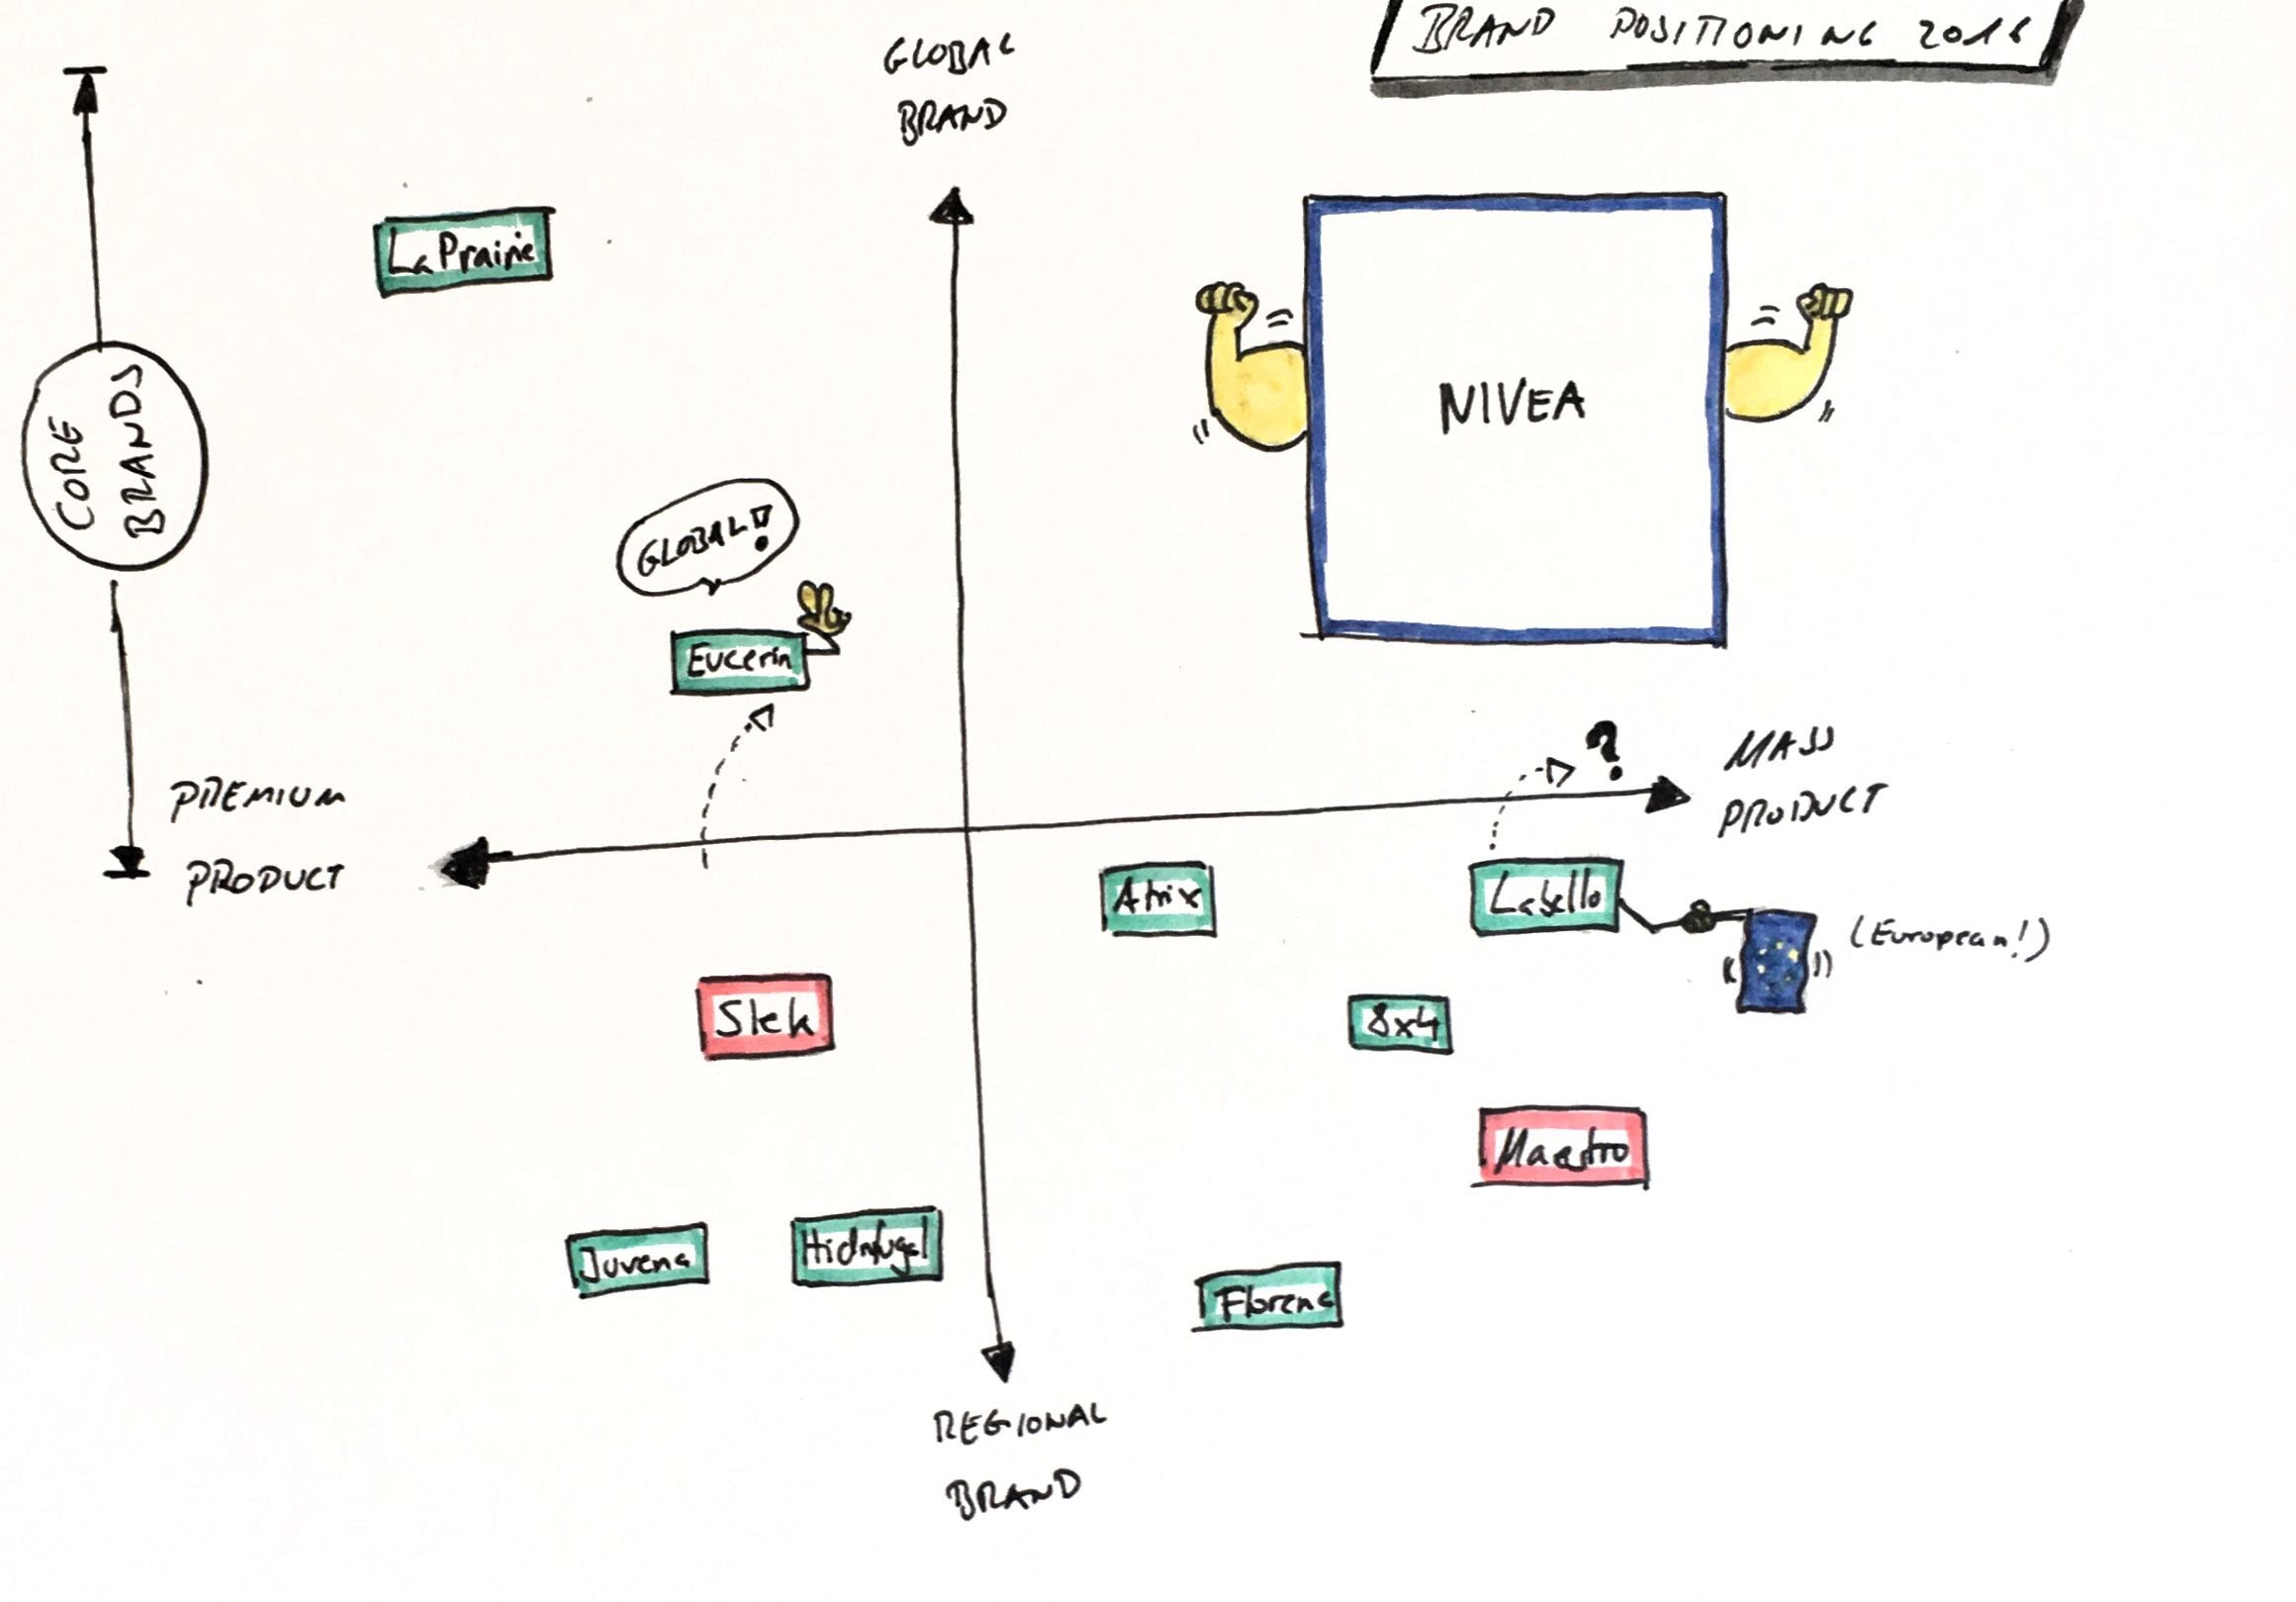 BRAND POSITIONING 2016
GLOBAL
BRAND
La Prairie
NIVEA
CORE
BRANDS
GLOBAL!!
Eucerin
MASS
PRODUCT
?
PREMIUM
PRODUCT
Atrix
Labello
(European!)
Slek
8x4
Maestro
Juvena
Hidrofugal
Florena
REGIONAL
BRAND